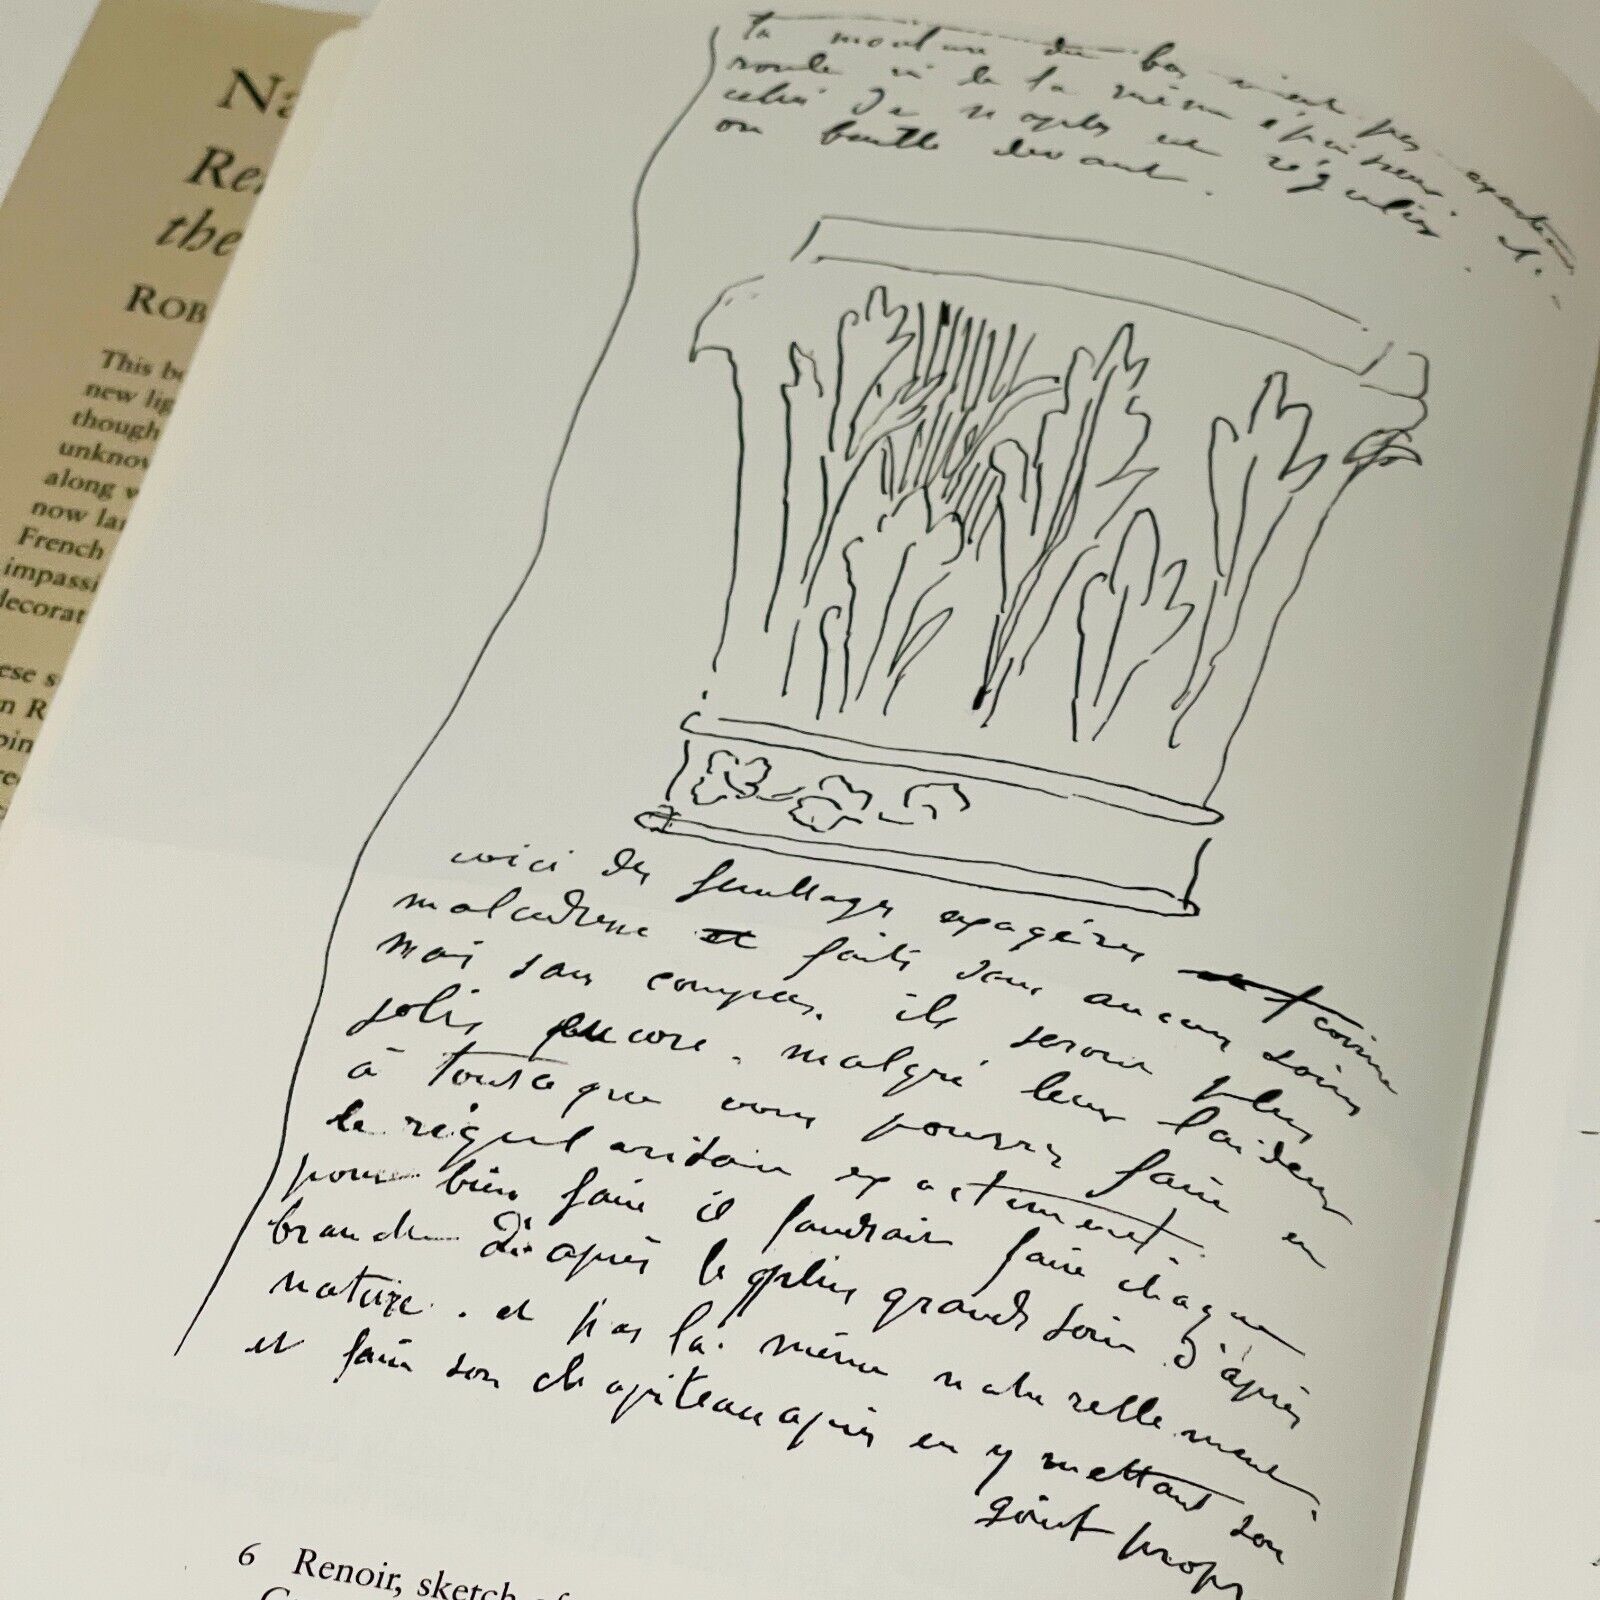 Na
Re
the
ROB
This b
new lig
though
unknow
along w
now la
French
impassi
decorat
ese s
n R
pin
re
la moulure du bas n'est pas exactement
ronde ni de la même épaisseur.
celui de n après est régulier et
on boulle devant.
voici des feuillages exagérés et comme
maladresse et faits sans aucun soin
mais sans compas. ils seront plus
jolis encore. malgré leur laideur
à tout ce que vous pourrez faire en
le régularisant exactement.
pour bien faire il faudrait faire chaque
branche d'après le plus grand soin d'après
nature. et pas la même naturellement.
et faire son chapiteau après en y mettant son
goût propr
6 Renoir, sketch of